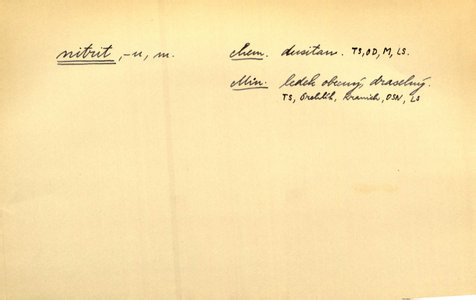 nitrit, -u, m. chem. dusitan. TS, OD, M, LS.
Min. ledek obecný, draselný.
TS, Orlitík, Kranich, OSN, LS